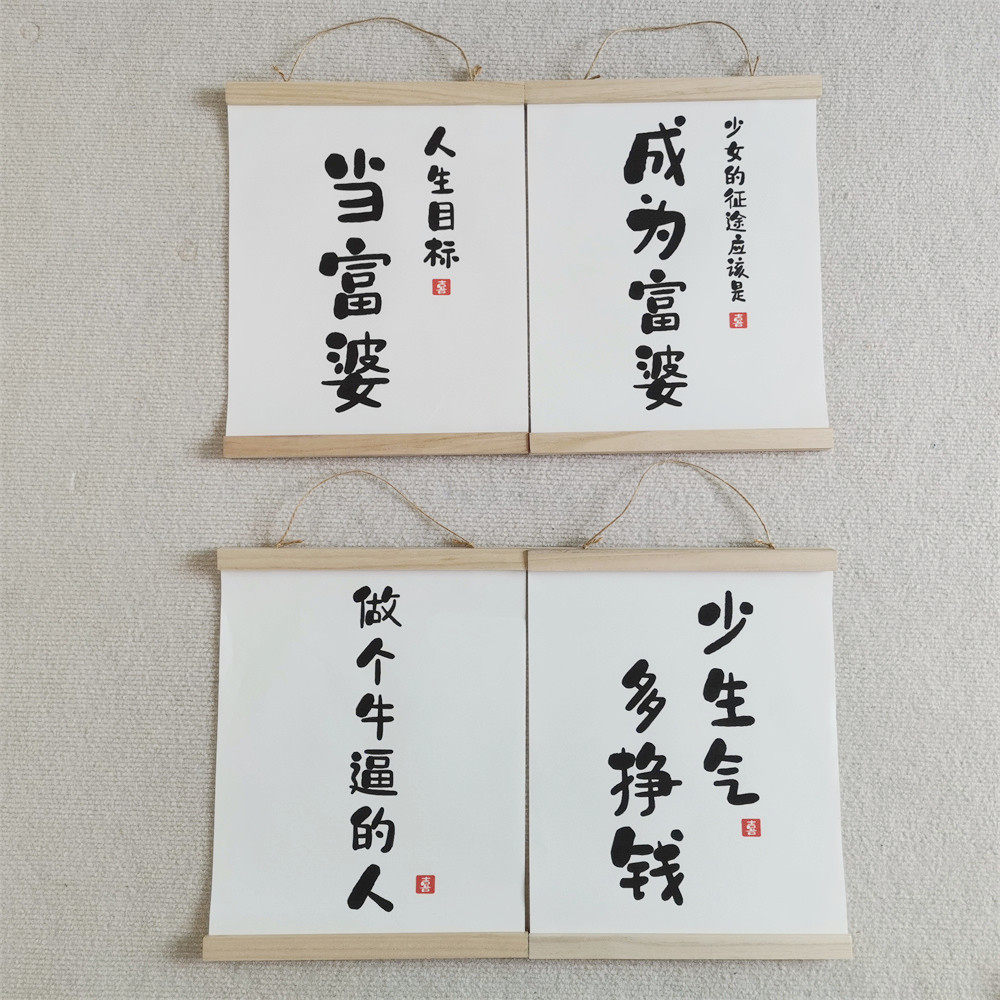 人生目标
喜
当富婆
少女的征途应该是
喜
成为富婆
做个牛逼的人
喜
少生气
喜
多挣钱